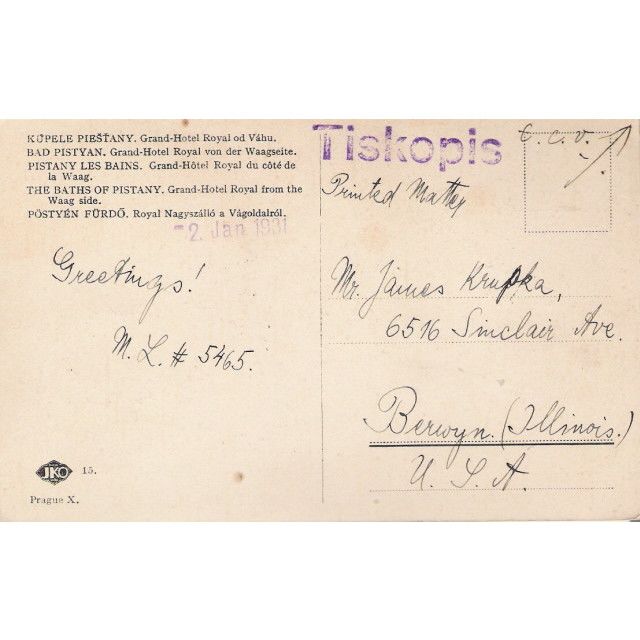 KÚPELE PIEŠŤANY. Grand-Hotel Royal od Váhu.
BAD PISTYAN. Grand-Hotel Royal von der Waagseite.
PISTANY LES BAINS. Grand-Hôtel Royal du côté de
la Waag.
THE BATHS OF PISTANY. Grand-Hotel Royal from the
Waag side.
PÖSTYÉN FÜRDŐ. Royal Nagyszálló a Vágoldalról.
2. Jan 1931
Greetings!
M. L. # 5465.
JKO 15.
Prague X.
Tiskopis
t. c. v.
Printed Matter
Mr. James Krupka,
6516 Sinclair Ave.
Berwyn. (Illinois.)
U. S. A.